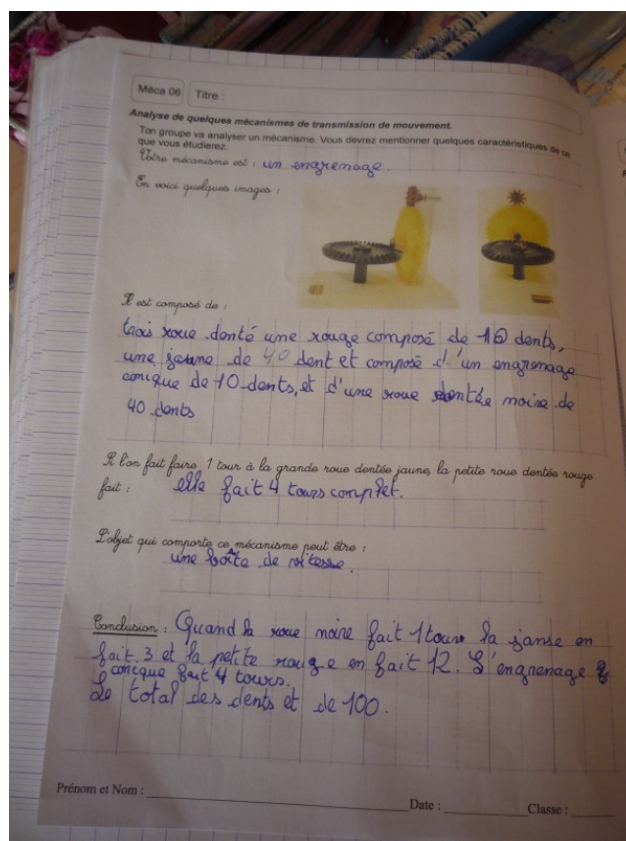 Méca 06 Titre :
Analyse de quelques mécanismes de transmission de mouvement.
Ton groupe va analyser un mécanisme. Vous devrez mentionner quelques caractéristiques de ce
que vous étudierez.
Votre mécanisme est : un engrenage.
En voici quelques images :
Il est composé de :
trois roue denté une rouge composé de 10 dents,
une jaune de 40 dent et composé d'un engrenage
conique de 10 dents, et d'une roue dentée noire de
40 dents
Si l'on fait faire 1 tour à la grande roue dentée jaune, la petite roue dentée rouge
fait : elle fait 4 tours complet.
L'objet qui comporte ce mécanisme peut être :
une boîte de vitesse.
Conclusion : Quand la roue noire fait 1 tour la janse en
fait 3 et la petite rouge en fait 12. L'engrenage
conique fait 4 tours.
Le total des dents et de 100.
Prénom et Nom :
Date : Classe :